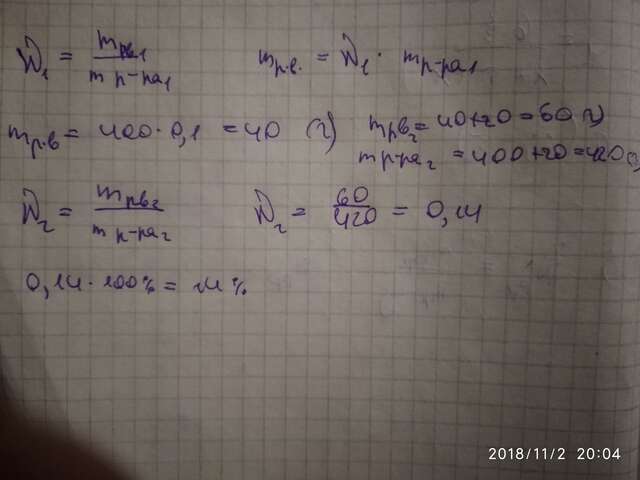 W₁ = mрв1 / m р-ра1    mр.в. = W₁ · mр-ра1
mр.в = 400·0,1 = 40 (г)    mрв2 = 40+20 = 60 г)
mр-ра2 = 400+20 = 420 г)
W₂ = mрв2 / m р-ра2    W₂ = 60/420 = 0,14
0,14·100% = 14%
2018/11/2 20:04